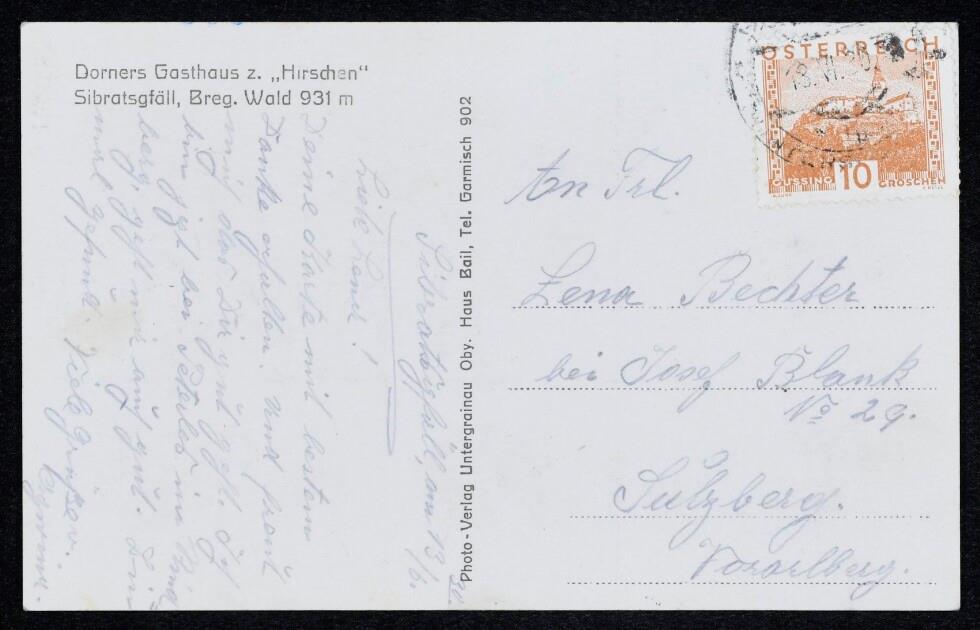 Dorners Gasthaus z. „Hirschen"
Sibratsgfäll, Breg. Wald 931 m
Sibratsgfäll, am 13/6.
Liebe Lena!
Deine Karte mit bestem
Danke erhalten. Und freut
mich das Dir gut geht. Ich
bin jetzt bei
berg, geht mir auch gut.
gesund. Viele Grüße v.
Photo-Verlag Untergrainau Oby. Haus Bail, Tel. Garmisch 902
ÖSTERREICH
18. VI. 30
GÜSSING 10 GROSCHEN
An Frl.
Lena Bechter
bei Josef Blank
No 29.
Sulzberg.
Vorarlberg.